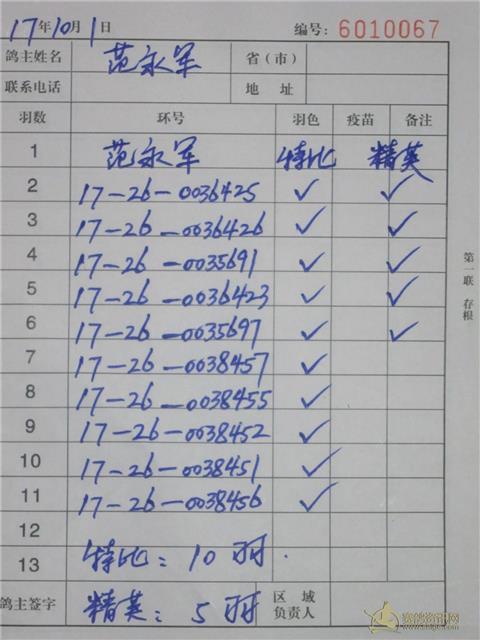 17年10月1日 编号: 6010067
鸽主姓名 范永军 省（市）
联系电话 地 址
羽数 环号 羽色 疫苗 备注
1 范永军 特比 精英
2 17-26-0036425 ✓ ✓
3 17-26-0036426 ✓ ✓
4 17-26-0035691 ✓ ✓
5 17-26-0036423 ✓ ✓
6 17-26-0035697 ✓ ✓
7 17-26-0038457 ✓
8 17-26-0038455 ✓
9 17-26-0038452 ✓
10 17-26-0038451 ✓
11 17-26-0038456 ✓
12
13 特比: 10羽.
鸽主签字 精英: 5羽 区 域
负责人
第一联 存根